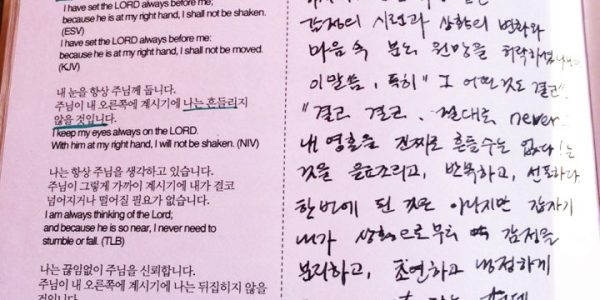 I have set the LORD always before me;
because he is at my right hand, I shall not be shaken.
(ESV)
I have set the LORD always before me:
because he is at my right hand, I shall not be moved.
(KJV)
내 눈을 항상 주님께 둡니다.
주님이 내 오른쪽에 계시기에 나는 흔들리지
않을 것입니다.
I keep my eyes always on the LORD.
With him at my right hand, I will not be shaken. (NIV)
나는 항상 주님을 생각하고 있습니다.
주님이 그렇게 가까이 계시기에 내가 결코
넘어지거나 떨어질 필요가 없습니다.
I am always thinking of the Lord;
and because he is so near, I never need to
stumble or fall. (TLB)
나는 끊임없이 주님을 신뢰합니다.
주님이 내 오른쪽에 계시기에 나는 뒤집히지 않을
것입니다.
감정의 시련과 상황의 변화와
마음 속 분노 원망을
이 말씀, 특히 "그 어떤 것도 결코"
"결코 결코, 절대로 never
내 영혼을 진짜로 흔들 수는 없다!는
것을 읊조리고, 반복하고, 선포하다
한번에 된 것은 아니지만 갑자기
내가 상황으로부터 감정을
분리하고, 초연하고 냉정하게